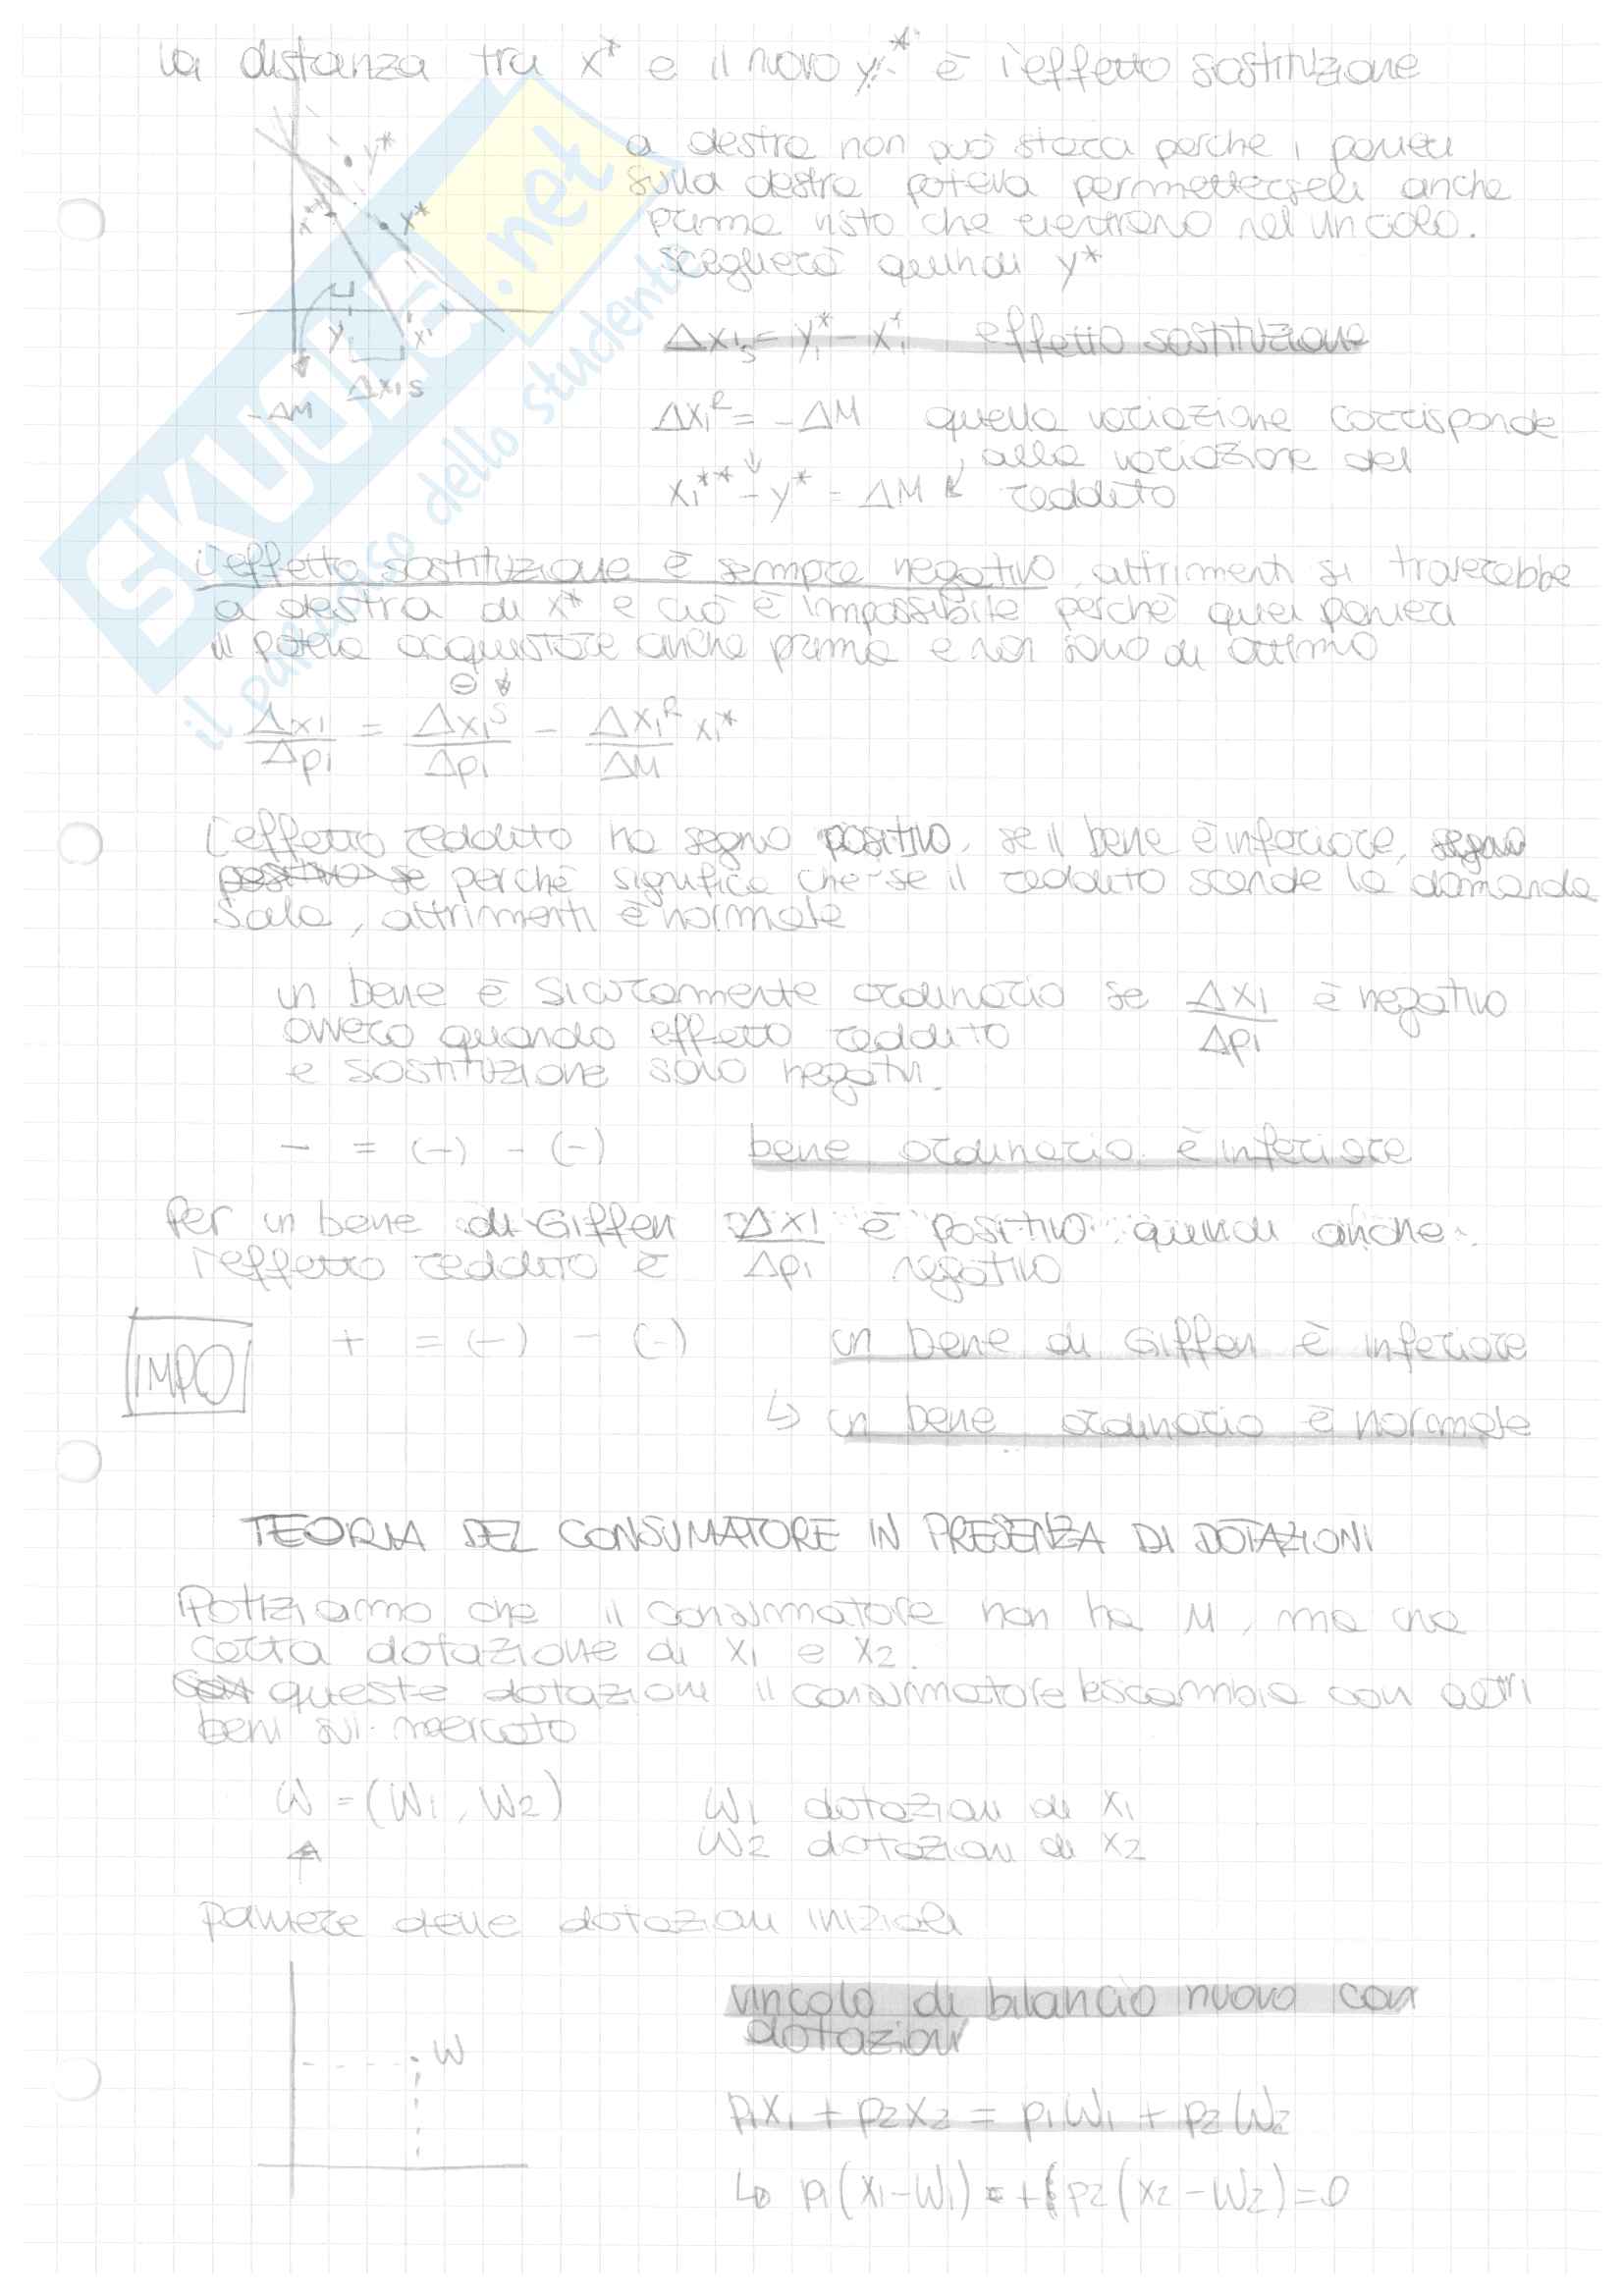 la distanza tra x* e il nuovo y* è l'effetto sostituzione
a destra non può starci perchè i panieri
sulla destra poteva permetterseli anche
prima visto che rientrano nel vincolo.
sceglierà quindi y*
y*
x**
x*
y1
x1
Δx1s
-ΔM
Δx1s = y1* - x1* effetto sostituzione
Δx1R = -ΔM quella variazione corrisponde
alla variazione del
x1** - y* = ΔM reddito
L'effetto sostituzione è sempre negativo, altrimenti si troverebbe
a destra di x* e ciò è impossibile perchè quei panieri
li poteva acquistare anche prima e non sono di ottimo
Δx1/Δp1 = Δx1S/Δp1 - Δx1R/ΔM x1*
L'effetto reddito ha segno positivo, se il bene è inferiore, segno
positivo se perchè significa che se il reddito scende la domanda
sale, altrimenti è normale
un bene è sicuramente ordinario se Δx1/Δp1 è negativo
ovvero quando effetto reddito
e sostituzione sono negativi.
- = (-) - (-) bene ordinario è inferiore
Per un bene di Giffen Δx1/Δp1 è positivo quindi anche
l'effetto reddito è negativo
IMPO
+ = (-) - (-) un bene di Giffen è inferiore
↳ un bene ordinario è normale
TEORIA DEL CONSUMATORE IN PRESENZA DI DOTAZIONI
Ipotizziamo che il consumatore non ha M, ma una
certa dotazione di x1 e x2.
Con queste dotazioni il consumatore le scambia con altri
beni sul mercato
W = (W1, W2) W1 dotazioni di x1
W2 dotazioni di x2
paniere delle dotazioni iniziali
W
vincolo di bilancio nuovo con
dotazioni
p1x1 + p2x2 = p1W1 + p2W2
↳ p1(x1-W1) + p2(x2-W2)=0
SKUOLA.net
il paradiso dello studente